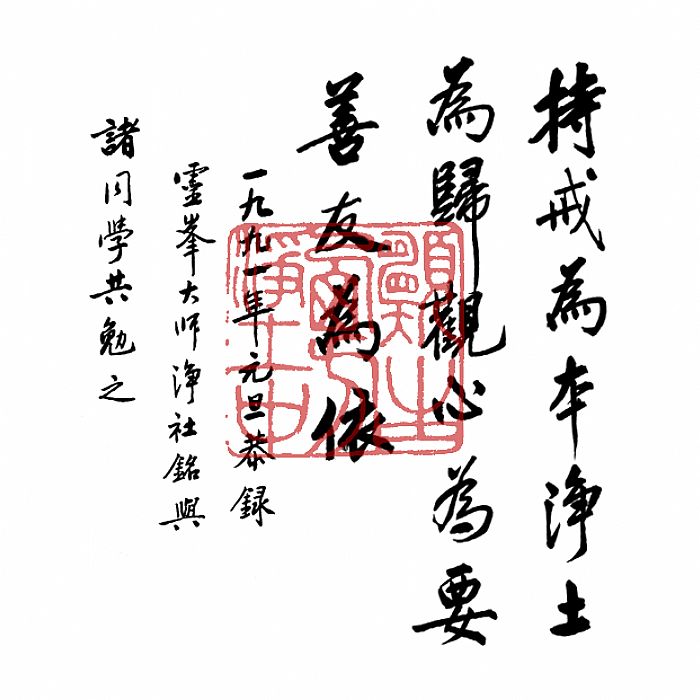 持戒為本淨土
為歸觀心為要
善友為依
一九九一年元旦恭録
靈峯大師淨社銘與
諸同學共勉之
願生
西方
淨土中